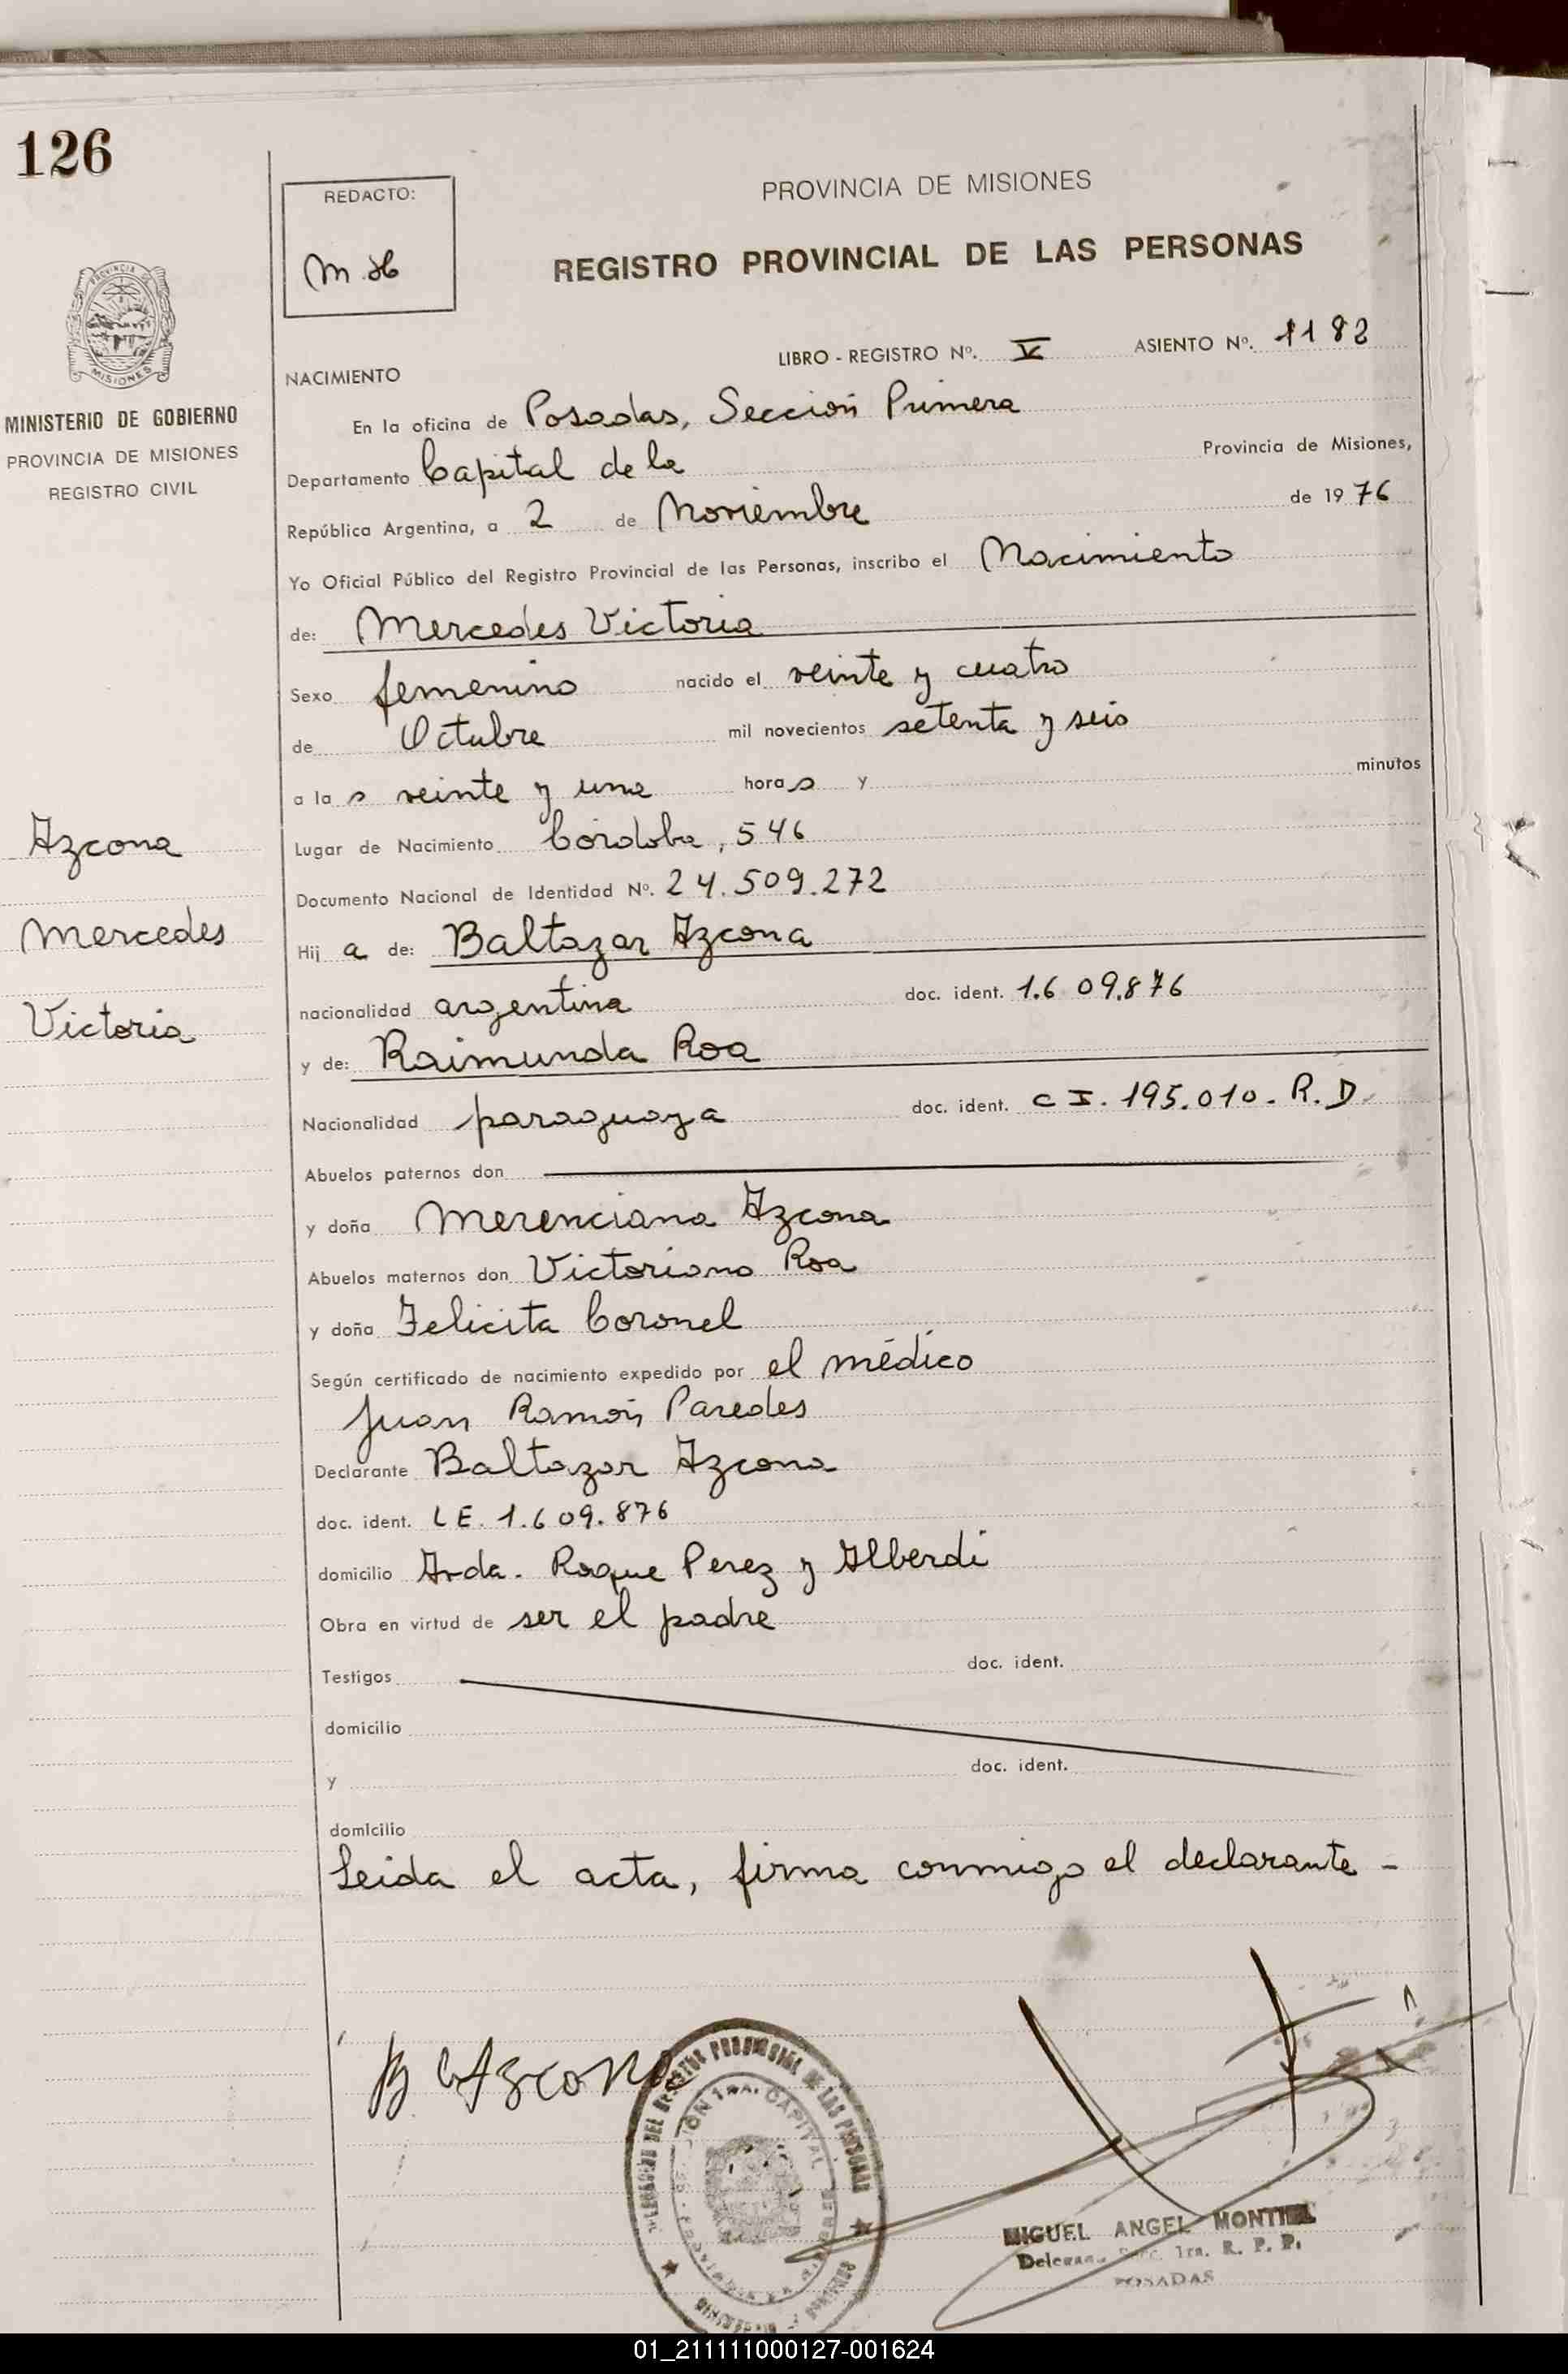 126
REDACTO:
PROVINCIA DE MISIONES
REGISTRO PROVINCIAL DE LAS PERSONAS
LIBRO - REGISTRO Nº. V ASIENTO Nº. 1182
NACIMIENTO
MINISTERIO DE GOBIERNO
PROVINCIA DE MISIONES
REGISTRO CIVIL
En la oficina de Posadas, Sección Primera
Departamento Capital de la Provincia de Misiones,
República Argentina, a 2 de Noviembre de 1976
Yo Oficial Público del Registro Provincial de las Personas, inscribo el Nacimiento
de: Mercedes Victoria
Sexo femenino nacido el veinte y cuatro
de Octubre mil novecientos setenta y seis
a la s veinte y una hora s y minutos
Lugar de Nacimiento Córdoba, 546
Documento Nacional de Identidad Nº. 24.509.272
Hij a de: Baltazar Azcona
nacionalidad argentina doc. ident. 1.609.876
y de: Raimunda Roa
Nacionalidad paraguaya doc. ident. C I. 195.010. R. D.
Abuelos paternos don
y doña Merenciana Azcona
Abuelos maternos don Victoriano Roa
y doña Felicita Coronel
Según certificado de nacimiento expedido por el médico
Juan Ramón Paredes
Declarante Baltazar Azcona
doc. ident. L E. 1.609.876
domicilio Avda. Roque Perez y Alberdi
Obra en virtud de ser el padre
Testigos doc. ident.
domicilio
y doc. ident.
domicilio
Leida el acta, firma conmigo el declarante -
Azcona
Mercedes
Victoria
B. Azcona
MIGUEL ANGEL MONTIEL
1ra. R. P. P.
POSADAS
01_211111000127-001624